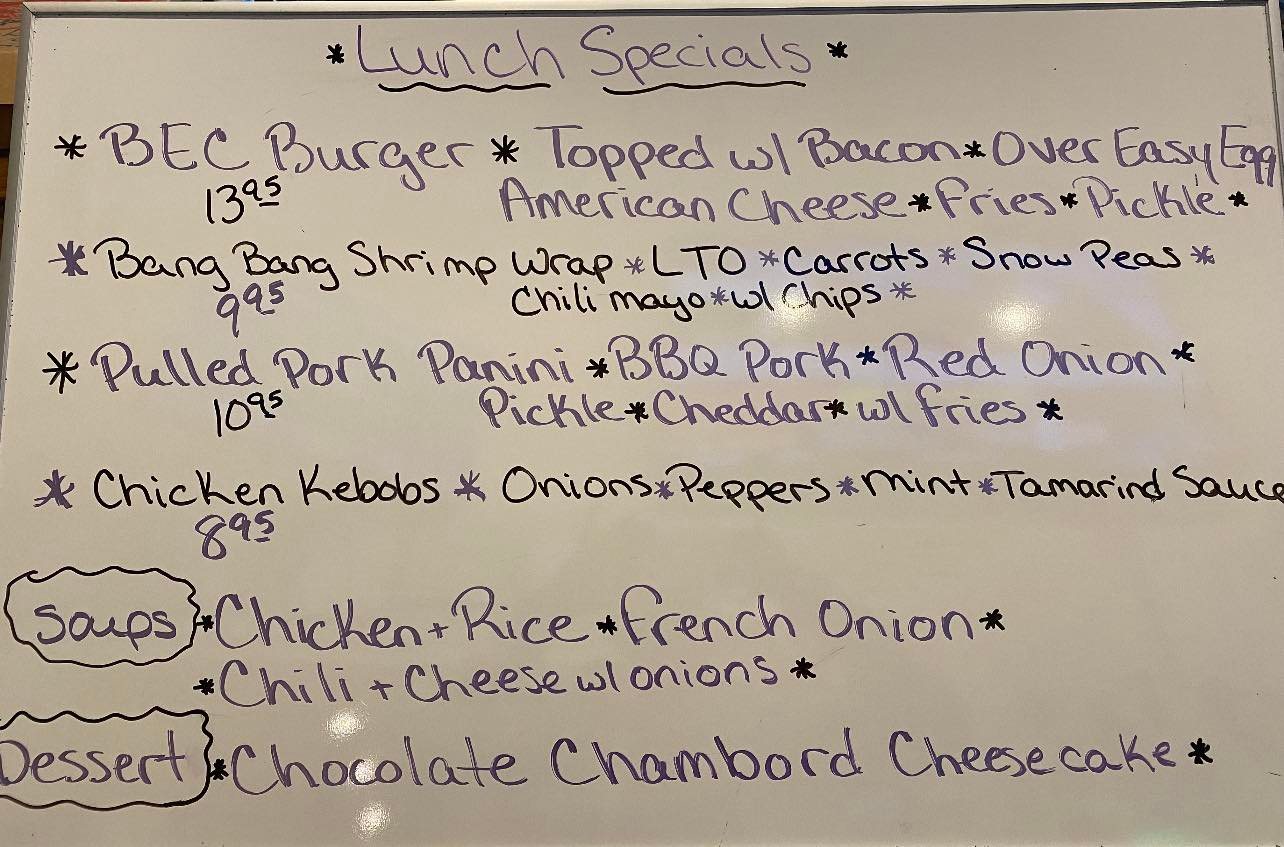 *Lunch Specials*
* BEC Burger * Topped w/ Bacon*Over Easy Egg
13 95 American Cheese*Fries*Pickle*
* Bang Bang Shrimp Wrap *LTO *Carrots *Snow Peas *
9 95 Chili mayo*w/ Chips *
* Pulled Pork Panini *BBQ Pork*Red Onion *
10 95 Pickle*Cheddar* w/ fries *
* Chicken Kebobs * Onions*Peppers*Mint*Tamarind Sauce
8 95
Soups *Chicken + Rice *French Onion*
*Chili + Cheese w/ onions *
Dessert *Chocolate Chambord Cheesecake*